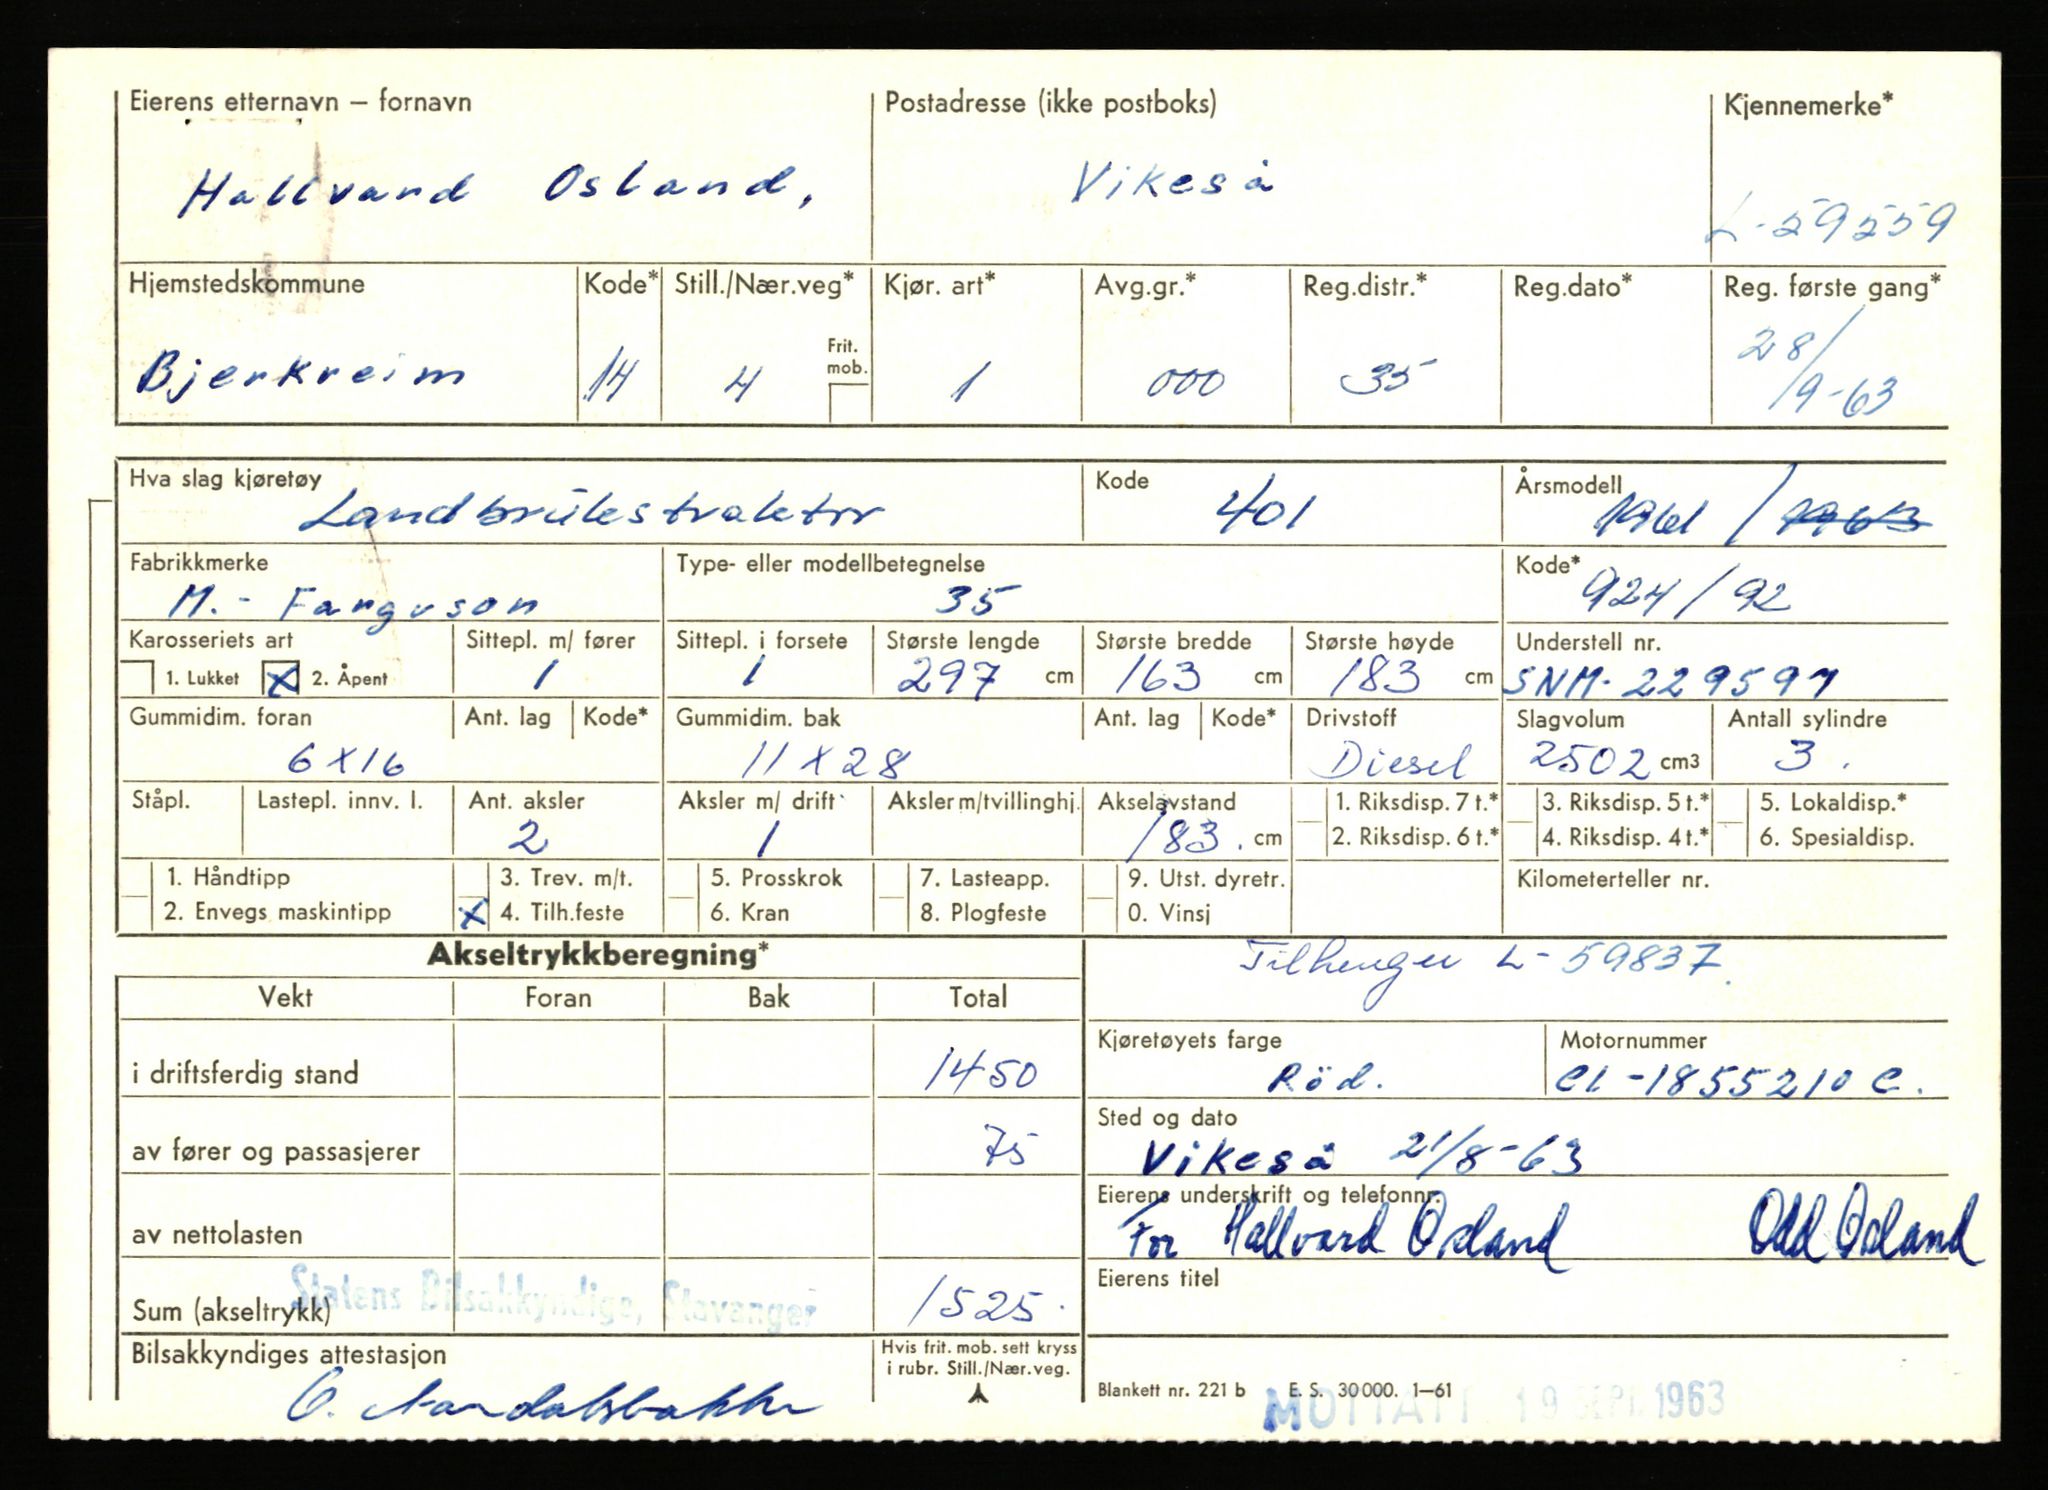 Eierens etternavn – fornavn Postadresse (ikke postboks) Kjennemerke*
Hallvard Osland, Vikeså L-59559
Hjemstedskommune Kode* Still./Nær.veg* Kjør. art* Avg.gr.* Reg.distr.* Reg.dato* Reg. første gang*
Frit. mob.
Bjerkreim 14 4 1 000 35 28/9-63
Hva slag kjøretøy Kode Årsmodell
Landbrukstraktor 401 1961 / 1963
Fabrikkmerke Type- eller modellbetegnelse Kode*
M.- Farguson 35 924/92
Karosseriets art Sittepl. m/ fører Sittepl. i forsete Største lengde Største bredde Største høyde Understell nr.
1. Lukket X 2. Åpent 1 1 297 cm 163 cm 183 cm SNM-229597
Gummidim. foran Ant. lag Kode* Gummidim. bak Ant. lag Kode* Drivstoff Slagvolum Antall sylindre
6x16 11x28 Diesel 2502 cm3 3.
Ståpl. Lastepl. innv. l. Ant. aksler Aksler m/ drift Aksler m/tvillinghj. Akselavstand 1. Riksdisp. 7 t.* 3. Riksdisp. 5 t.* 5. Lokaldisp.*
2 1 183. cm 2. Riksdisp. 6 t.* 4. Riksdisp. 4 t.* 6. Spesialdisp.
1. Håndtipp 3. Trev. m/t. 5. Prosskrok 7. Lasteapp. 9. Utst. dyretr. Kilometerteller nr.
2. Envegs maskintipp X 4. Tilh.feste 6. Kran 8. Plogfeste 0. Vinsj
Akseltrykkberegning* Tilhenger L-59837.
Vekt Foran Bak Total
Kjøretøyets farge Motornummer
i driftsferdig stand 1450 Röd. CL-1855210 C.
Sted og dato
av fører og passasjerer 75 Vikeså 21/8-63
Eierens underskrift og telefonnr.
av nettolasten For Hallvard Osland Odd Osland
Eierens titel
Statens Bilsakkyndige, Stavanger
Sum (akseltrykk) 1525.
Bilsakkyndiges attestasjon Hvis frit. mob. sett kryss
i rubr. Still./Nær.veg.
Blankett nr. 221 b E. S. 30000. 1–61
MOTTATT 19 SEPT. 1963